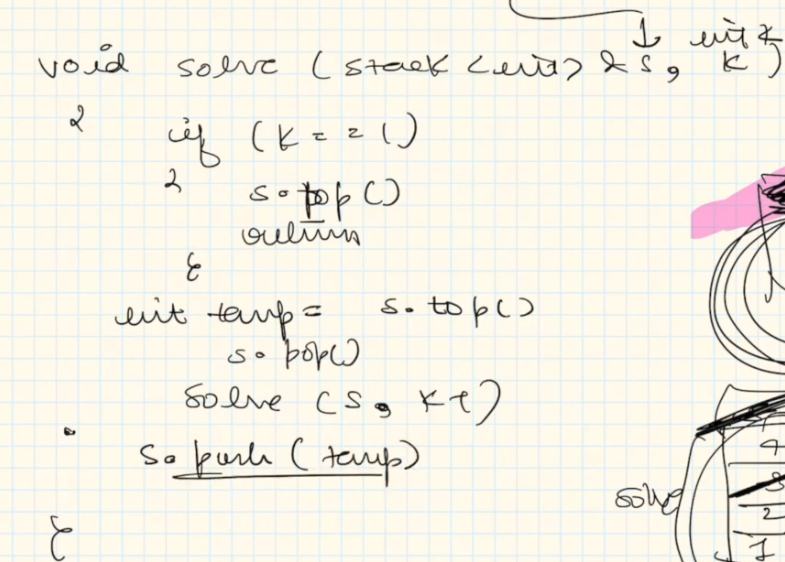 int k
void solve ( stack <int> & s, k )
{
if ( k == 1 )
{
s.pop ( )
return
}
int temp = s.top ( )
s.pop ( )
solve ( s, k-1 )
s.push ( temp )
}
4
3
solve
2
1